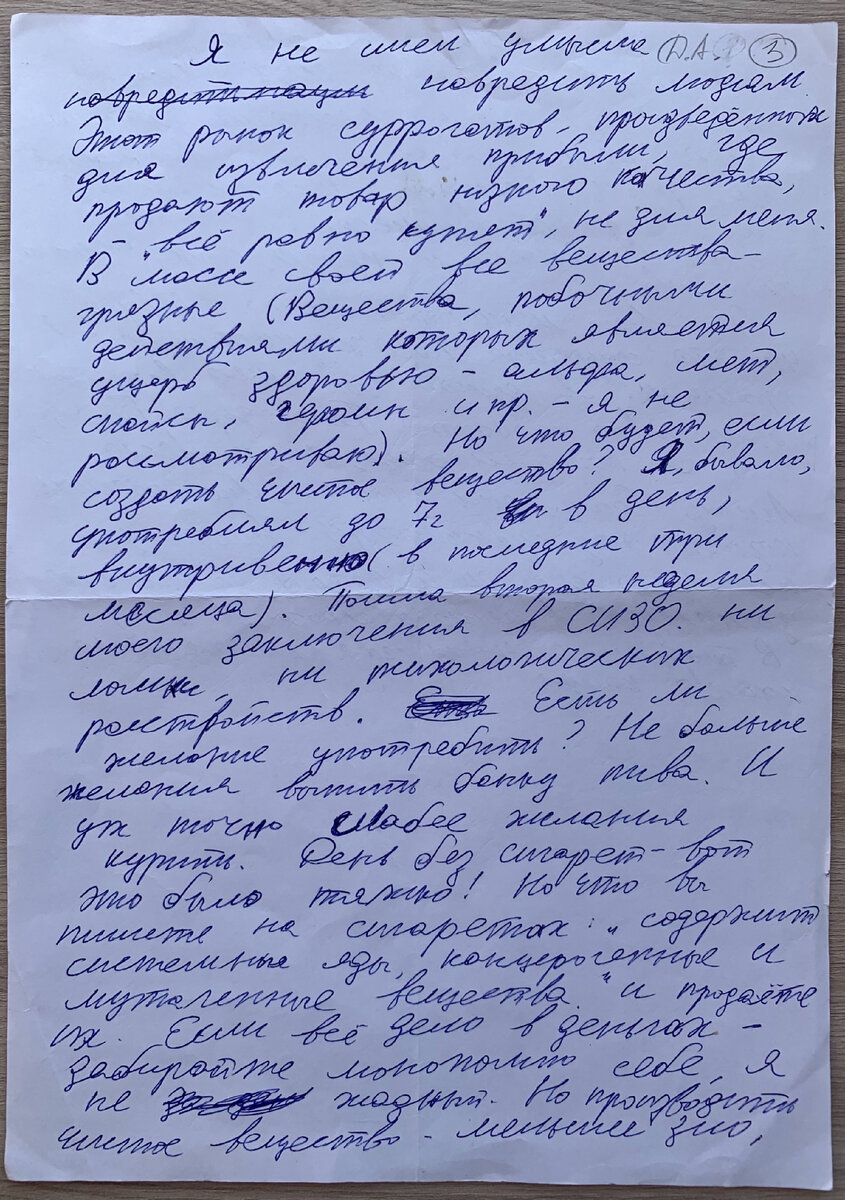 Я не имел умысла Д.А. 3
повредить людям.
Этот рынок суррогатов, произведённых
для извлечения прибыли, где
продают товар низкого качества,
– "всё равно купят", не для меня.
В массе своей все вещества –
грязные (Вещества, побочными
действиями которых является
ущерб здоровью – альфа, мет,
спайсы, героин и пр. – я не
рассматриваю). Но что будет, если
создать чистое вещество? Я, бывало,
употреблял до 7г в день,
внутривенно (в последние три
месяца). Пошла вторая неделя
моего заключения в СИЗО. ни
ломки, ни психологических
расстройств. Есть ли
желание употребить? Не больше
желания выпить банку пива. И
уж точно слабее желания
курить. День без сигарет – вот
это было тяжко! Но что вы
пишете на сигаретах: "содержит
системные яды, канцерогенные и
мутагенные вещества" и продаёте
их. Если всё дело в деньгах –
забирайте монополию себе, я
не жадный. Но производить
чистое вещество – меньшее зло,